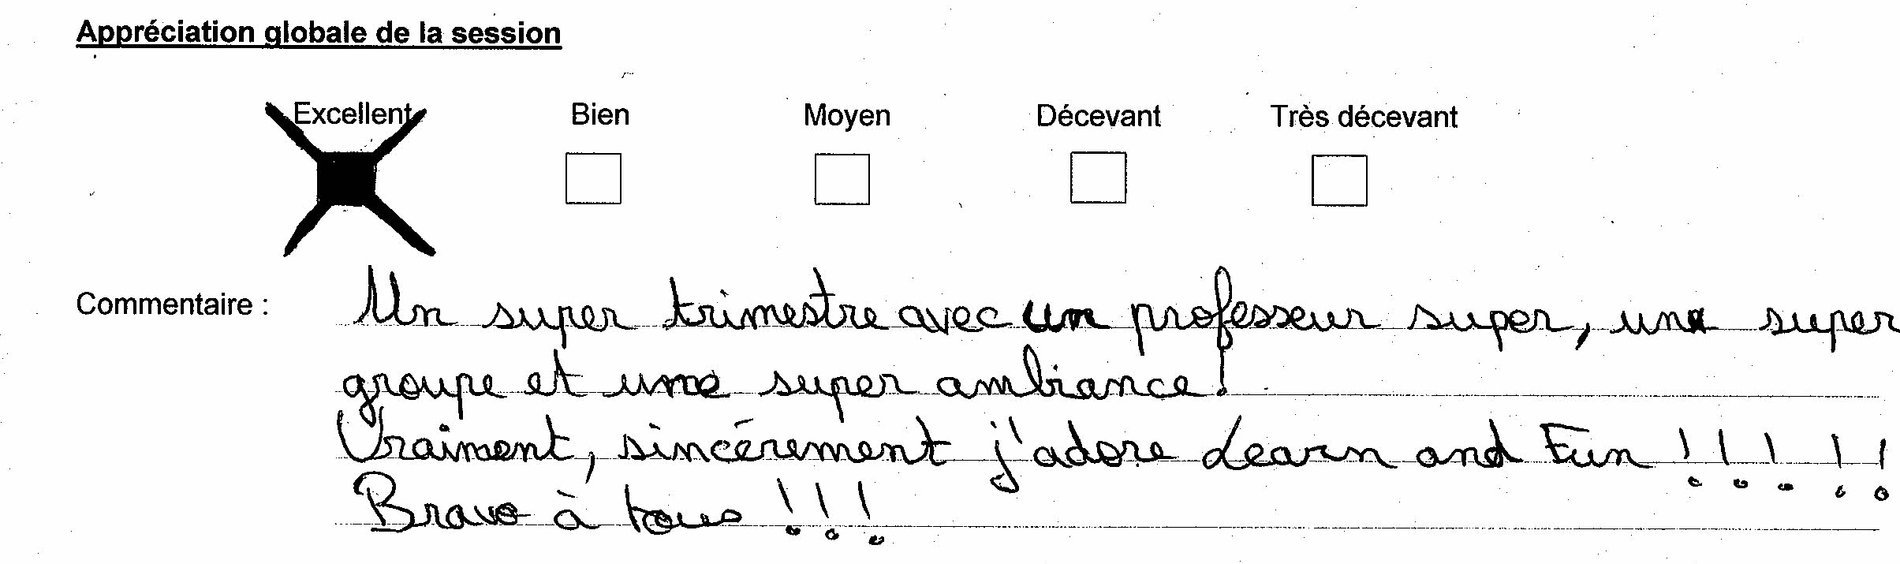 Appréciation globale de la session
Excellent Bien Moyen Décevant Très décevant
Commentaire : Un super trimestre avec un professeur super, un super
groupe et une super ambiance!
Vraiment, sincérement j'adore Learn and Fun !!! !!
Bravo à tous !!!